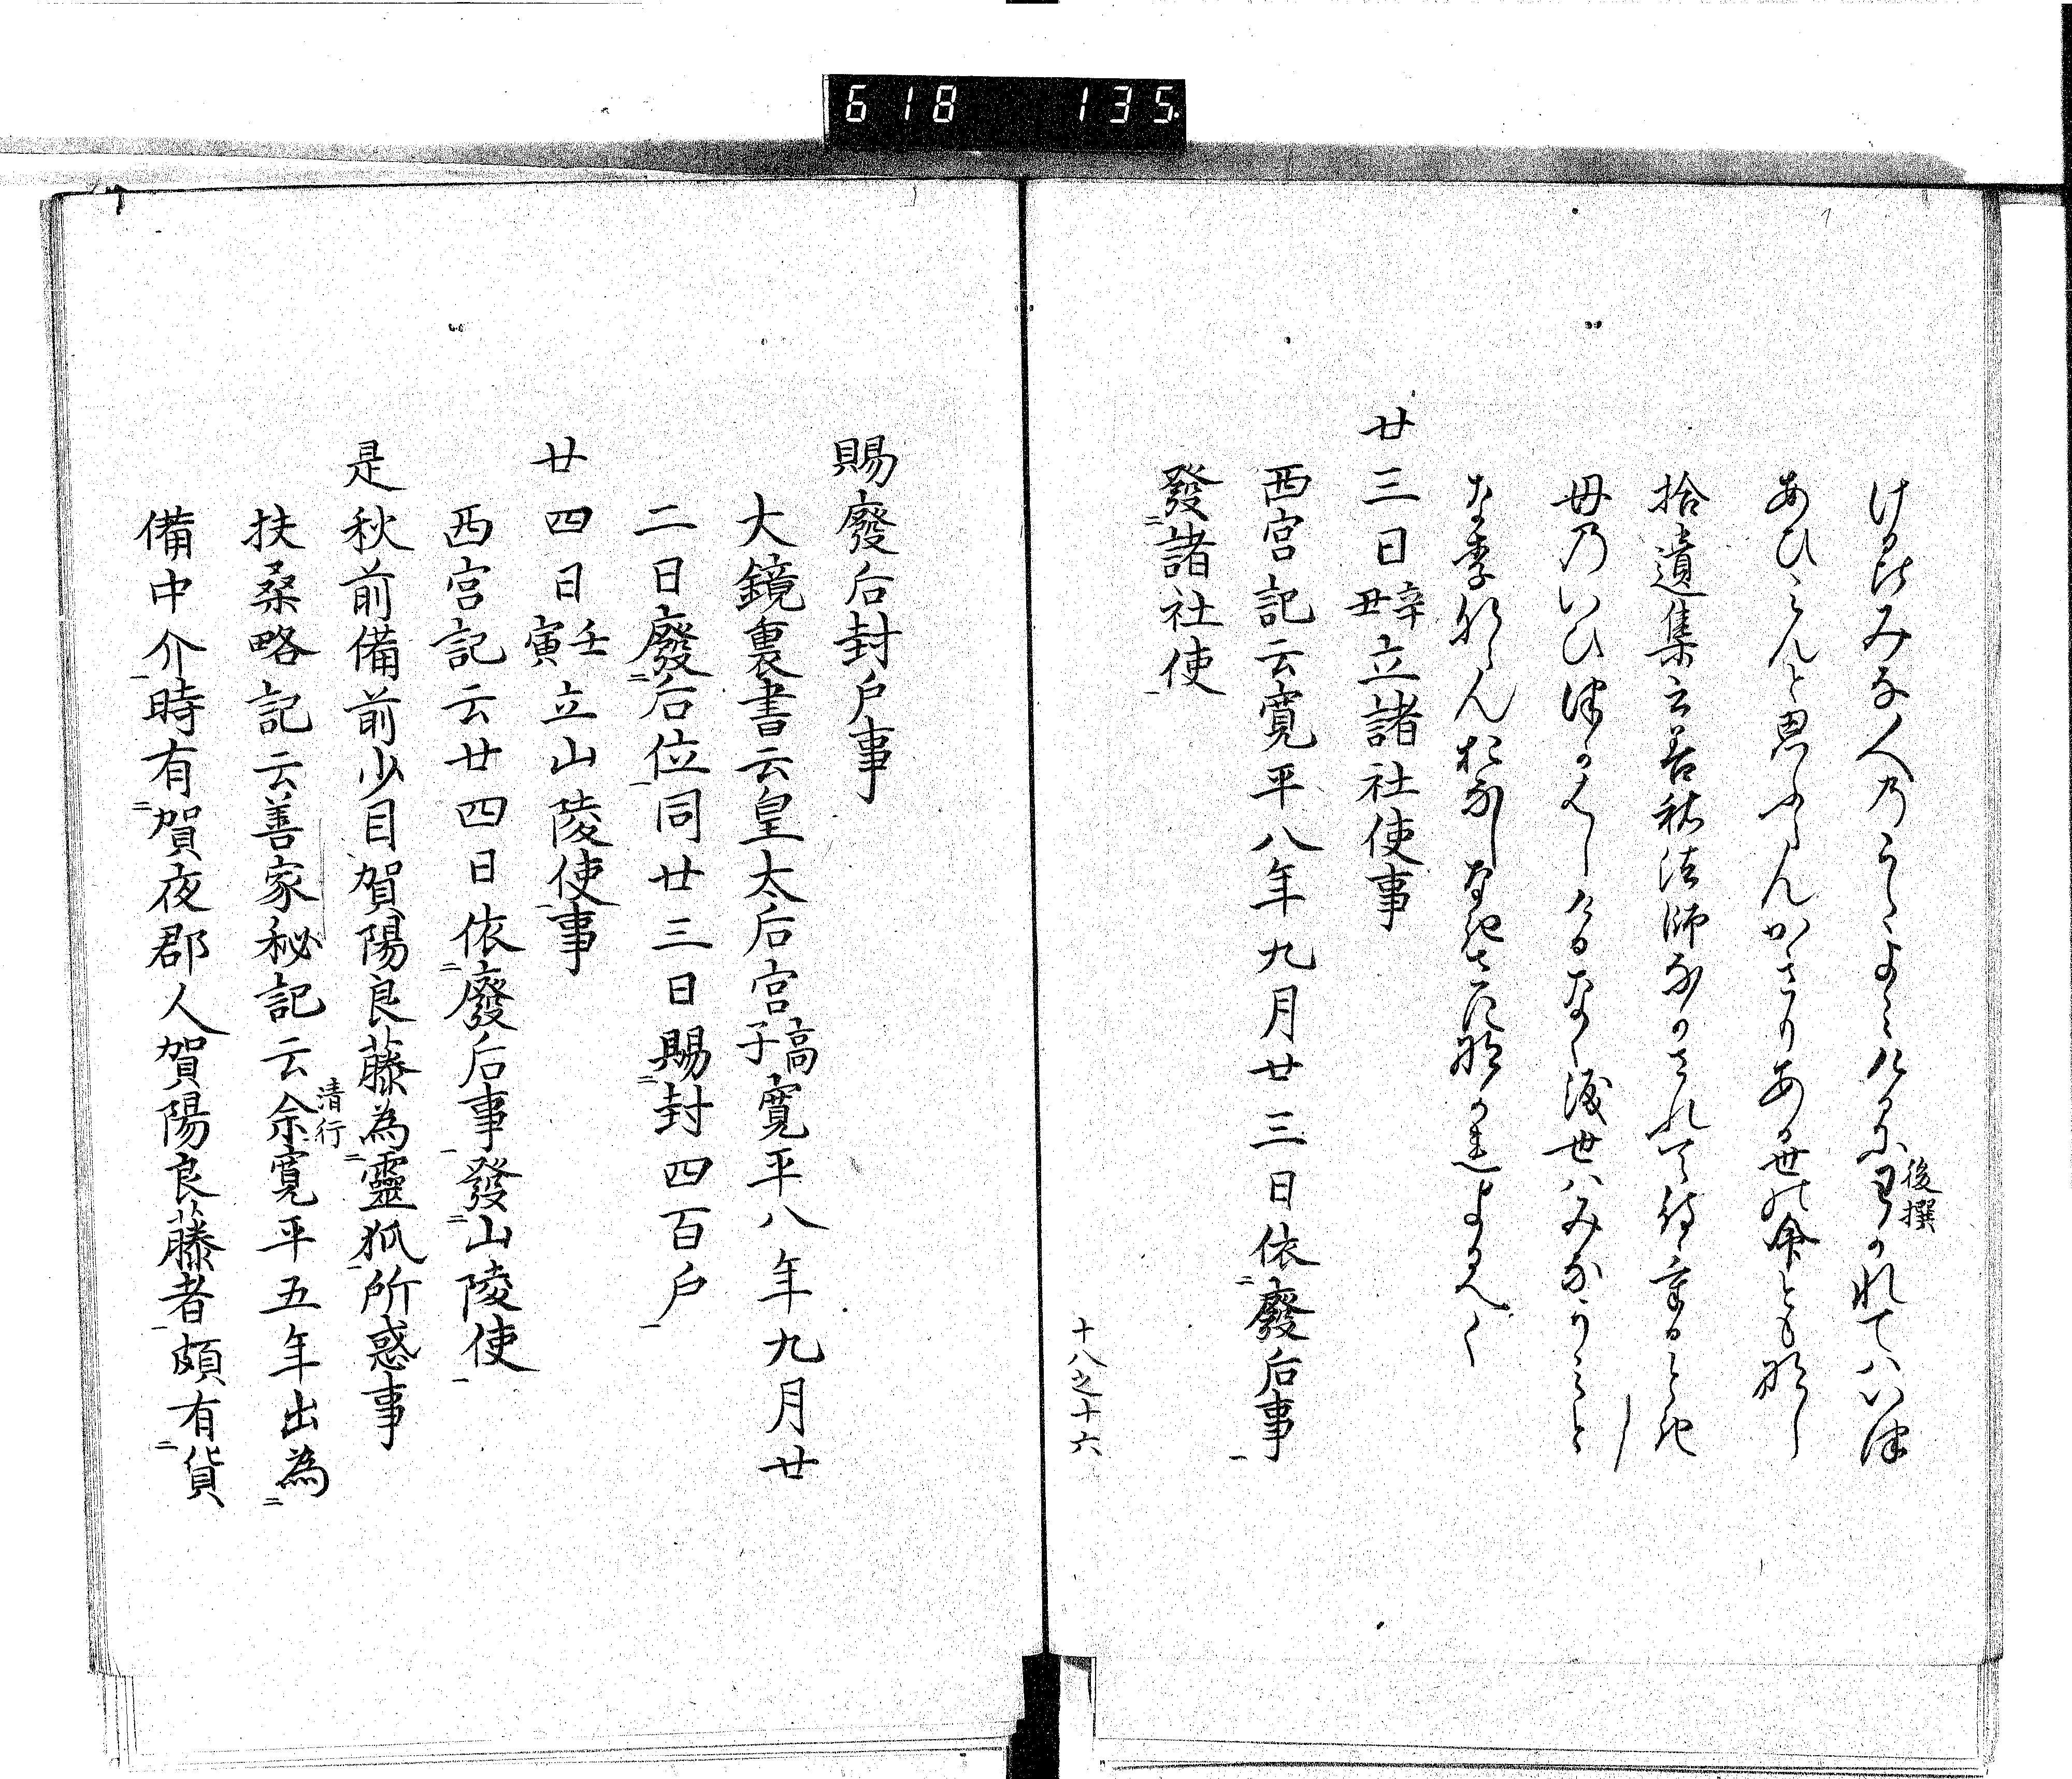 ける時みな人乃うたよみけるに わかれてはいつ
後撰
あひみんと思ふらんかきりある世の命とも那し
拾遺集云善祐法師なかされて侍けるとき
母乃いひつかはしける なく涙世はみなうみと
なりななんおなしなきさに那かれよるへく
廿三日辛丑立諸社使事
西宮記云寛平八年九月廿三日依廢后事
發諸社使
十八之十六
賜廢后封戸事
大鏡裏書云皇太后宮高子寛平八年九月廿
二日廢后位同廿三日賜封四百戸
廿四日壬寅立山陵使事
西宮記云廿四日依廢后事發山陵使
是秋前備前少目賀陽良藤為靈狐所惑事
扶桑略記云善家秘記云余清行寛平五年出為
備中介時有賀夜郡人賀陽良藤者頗有貨
618 135